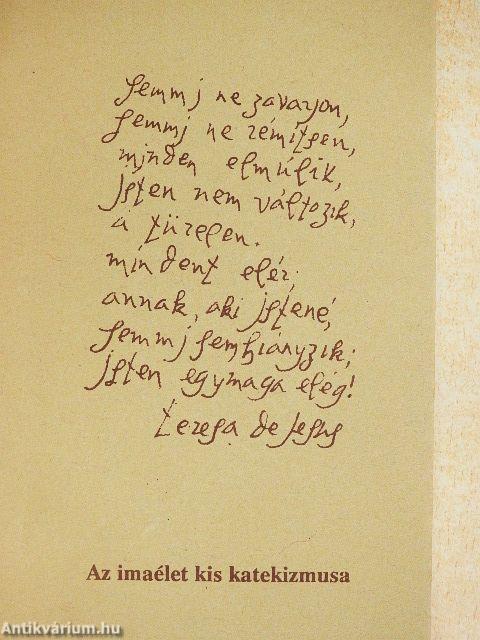 semmi ne zavarjon,
semmi ne rémítsen,
minden elmúlik,
isten nem változik,
a türelem.
mindent elér;
annak, aki istené,
semmi semhiányzik;
isten egymaga elég!
teresa de jesus
Az imaélet kis katekizmusa
Antikvárium.hu